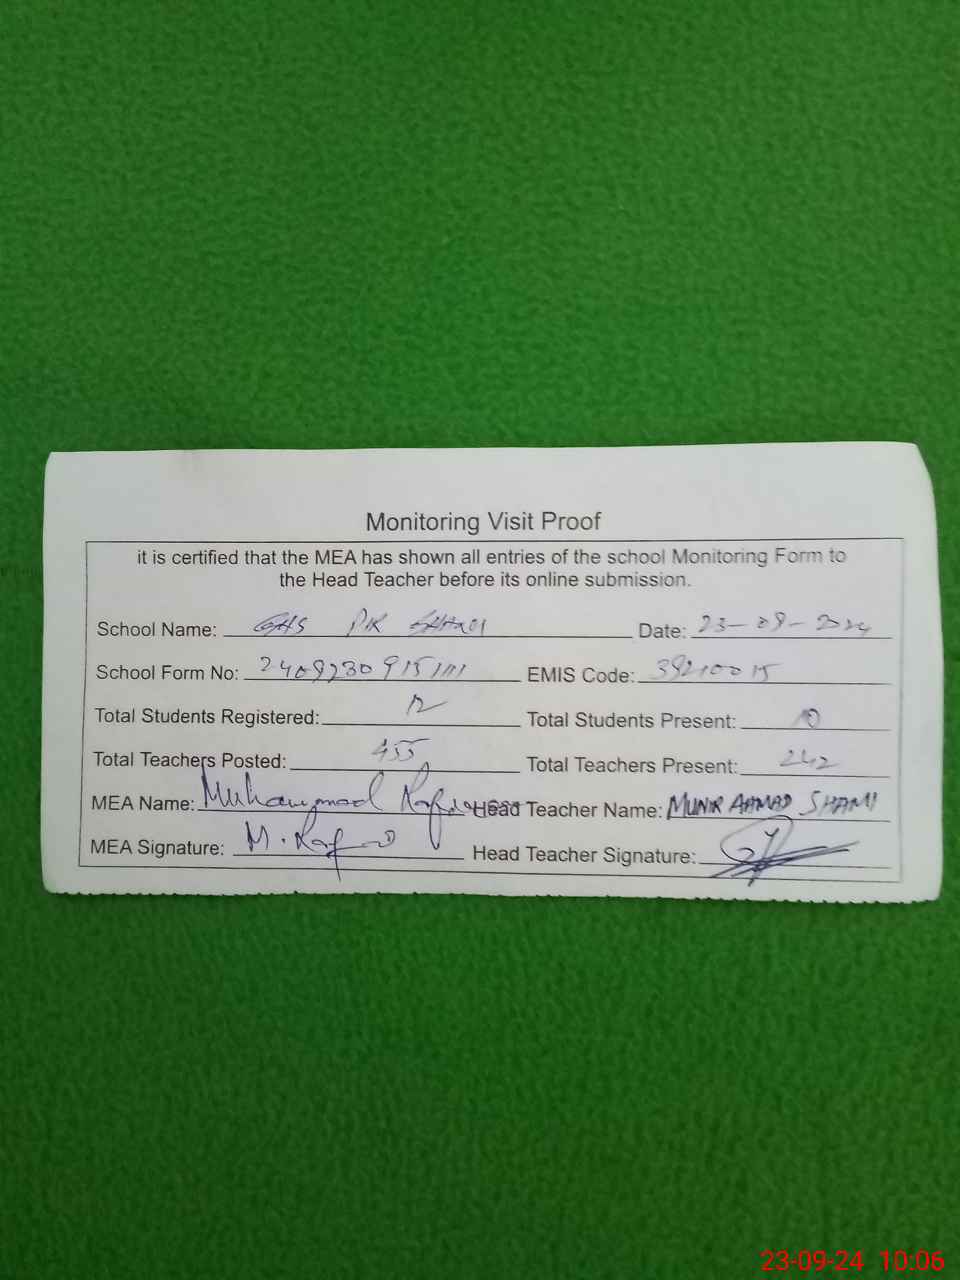 Monitoring Visit Proof
it is certified that the MEA has shown all entries of the school Monitoring Form to
the Head Teacher before its online submission.
School Name: GHS PIR SHAH Date: 23-09-2024
School Form No: EMIS Code: 39210015
Total Students Registered: 12 Total Students Present: 10
Total Teachers Posted: 455 Total Teachers Present: 242
MEA Name: Muhammad Head Teacher Name: MUNIR AHMAD SHAMI
MEA Signature: M. Head Teacher Signature:
23-09-24 10:06